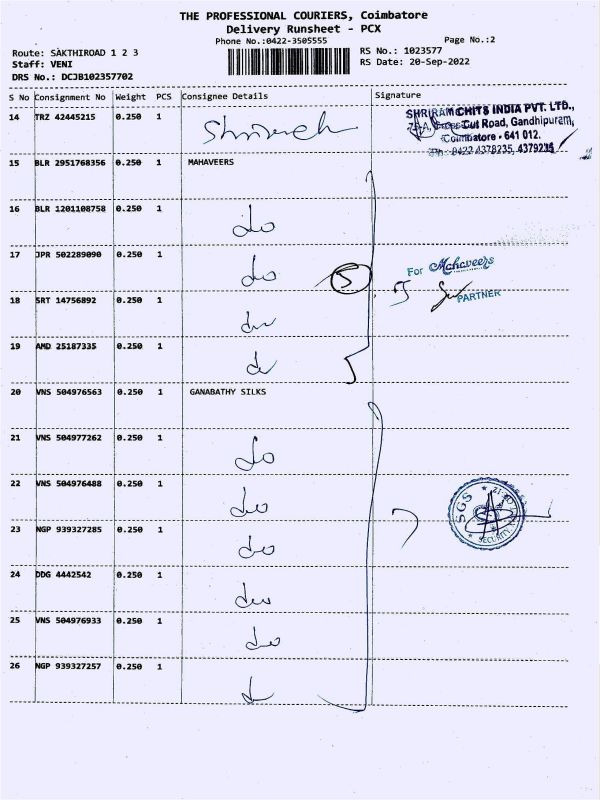 THE PROFESSIONAL COURIERS, Coimbatore
Delivery Runsheet - PCX
Phone No.:0422-3505555
Page No.:2
Route: SAKTHIROAD 1 2 3
RS No.: 1023577
Staff: VENI
RS Date: 20-Sep-2022
DRS No.: DCJB102357702
S No Consignment No Weight PCS Consignee Details Signature
14 TRZ 42445215 0.250 1
SHRIRAM CHITS INDIA PVT. LTD.,
Cut Road, Gandhipuram,
Coimbatore - 641 012.
Ph : 0422 4378235, 4379235
15 BLR 2951768356 0.250 1 MAHAVEERS
16 BLR 1201108758 0.250 1 do
17 JPR 502289090 0.250 1 do 5
For Mahaveers
PARTNER
18 SRT 14756892 0.250 1 do
19 AMD 25187335 0.250 1 do
20 VNS 504976563 0.250 1 GANABATHY SILKS
21 VNS 504977262 0.250 1 do
22 VNS 504976488 0.250 1 do
SGS
SECURITY
23 NGP 939327285 0.250 1 do
24 DDG 4442542 0.250 1 do
25 VNS 504976933 0.250 1 do
26 NGP 939327257 0.250 1 do